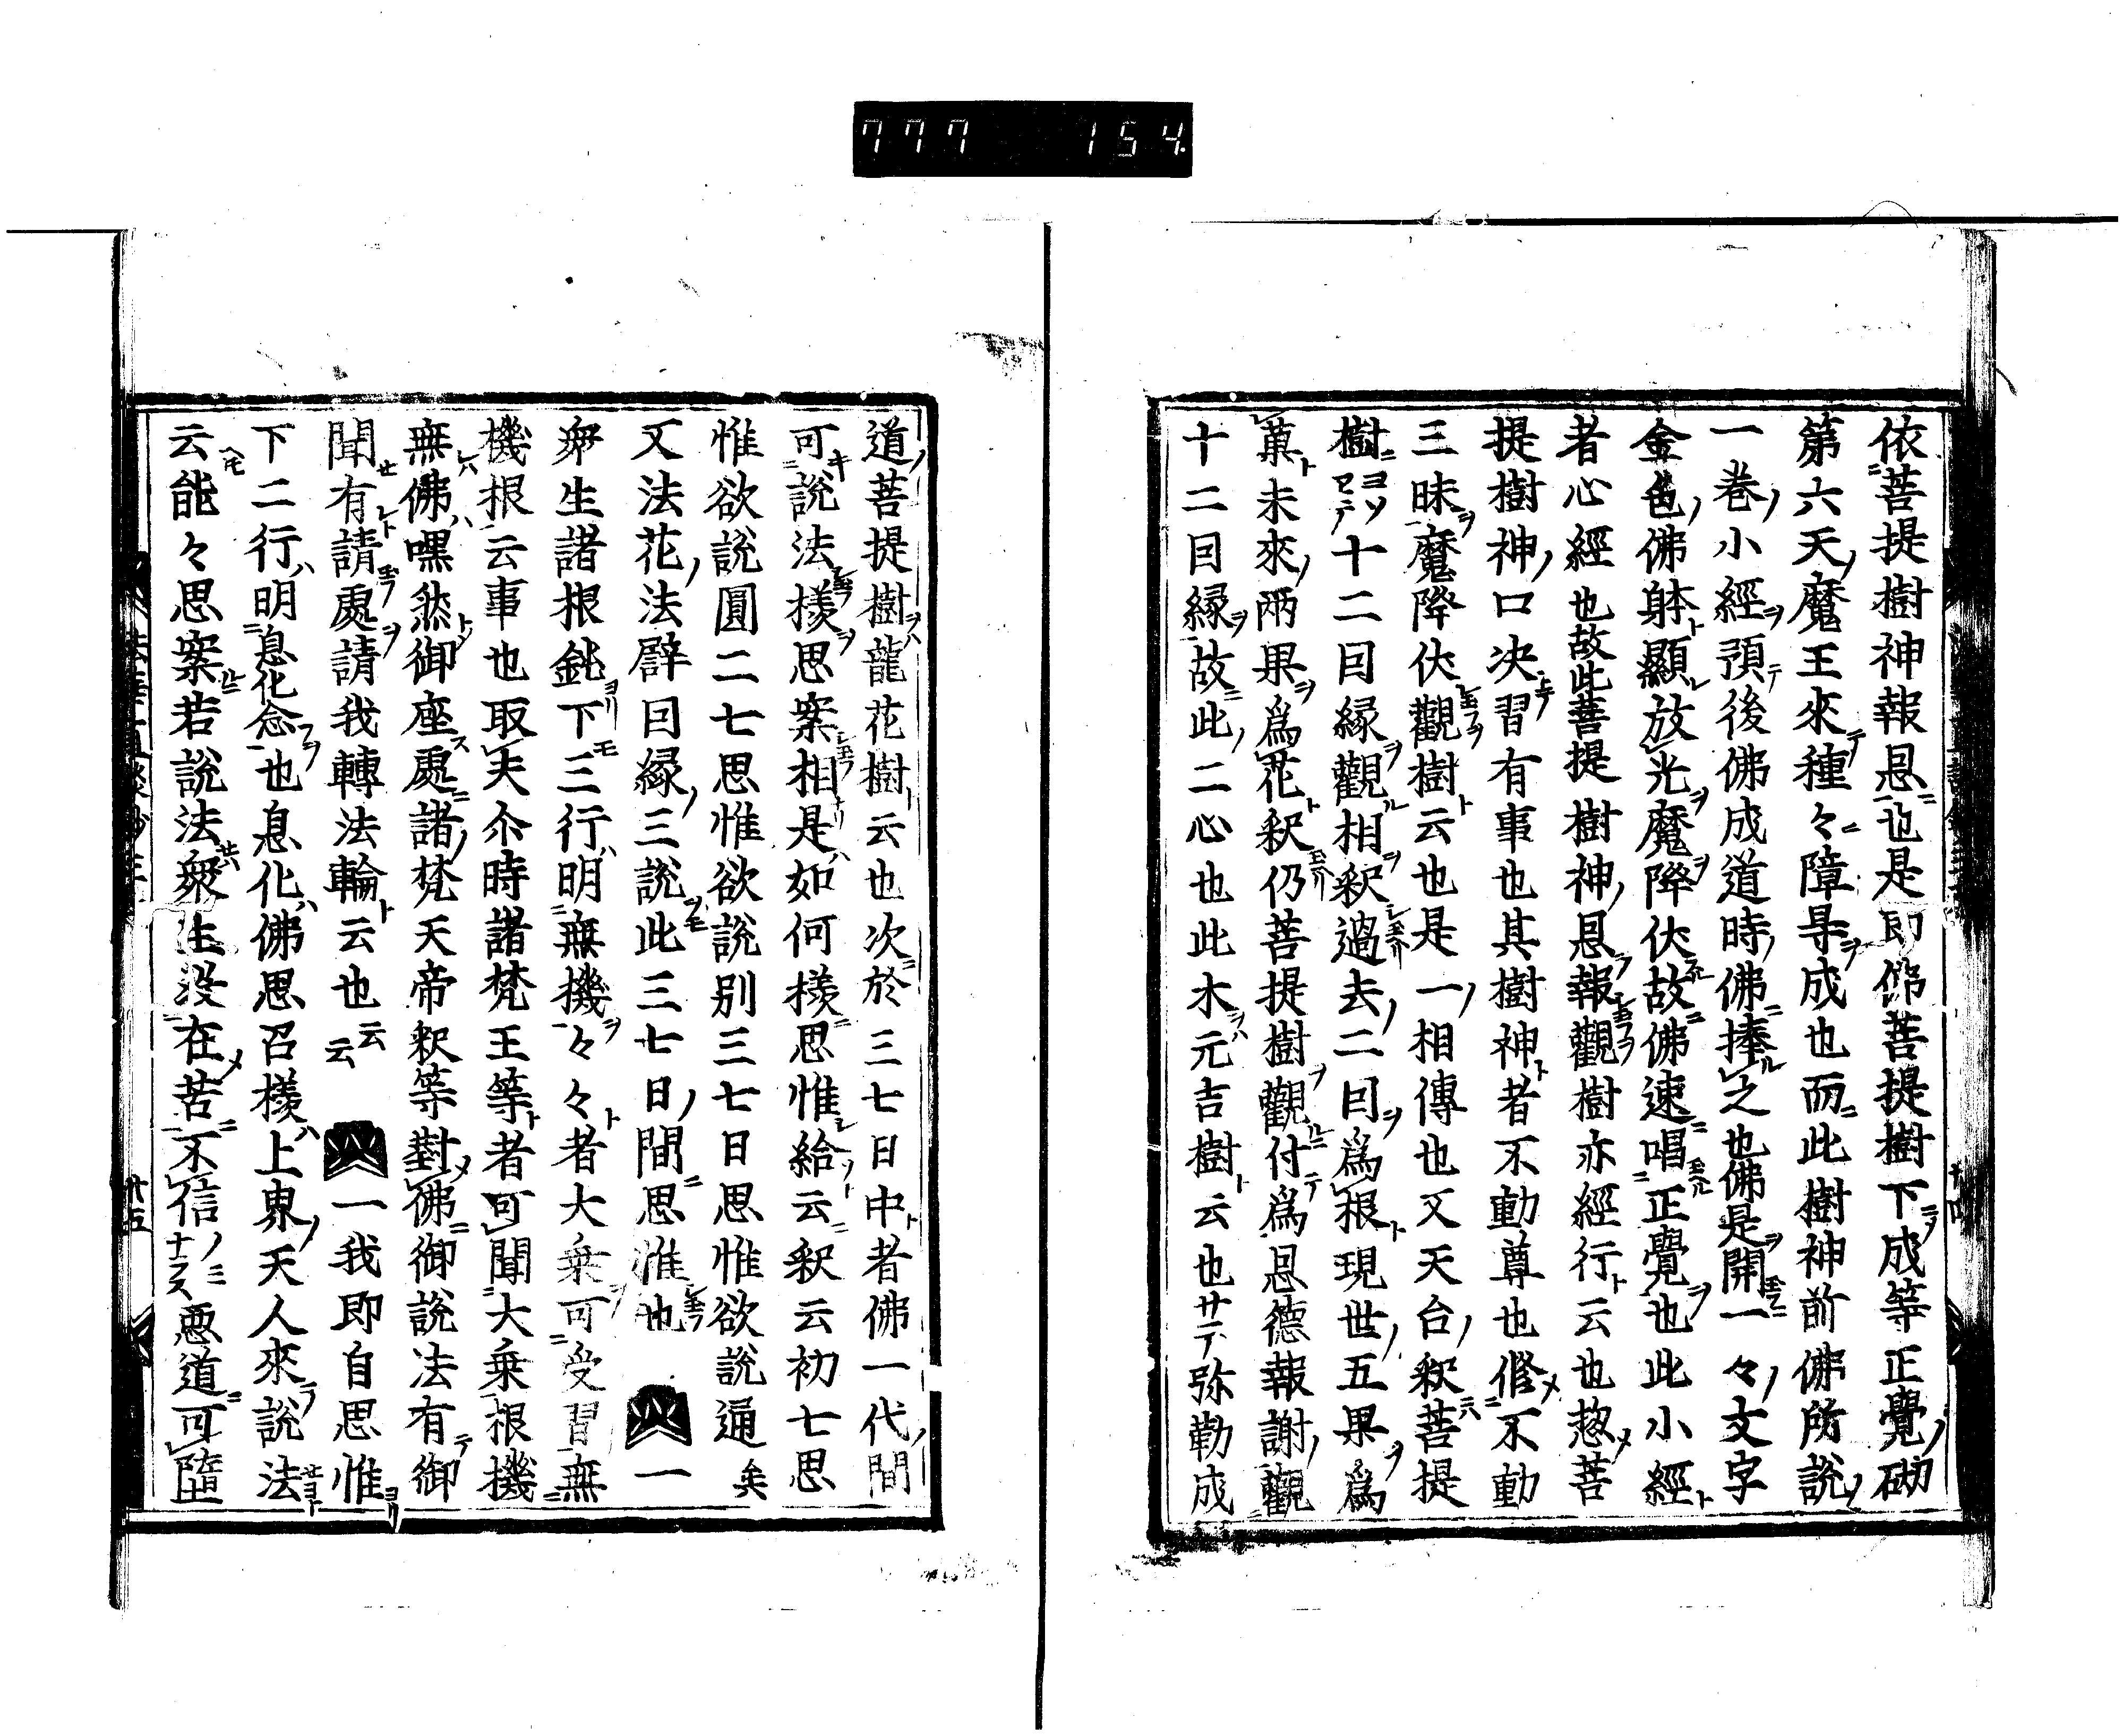 777 154
依菩提樹神報恩也是即佛菩提樹下成等正覺砌
第六天魔王來種々障导成也而此樹神前佛所說
一巻小經預後佛成道時佛捧之也佛是開一々文字
金色佛躰顯放光魔降伏故佛速唱正覺也此小經
者心經也故此菩提樹神恩報觀樹亦經行云也惣菩
提樹神口决習有事也其樹神者不動尊也修不動
三昧魔降伏觀樹云也是一相傳也又天台釈菩提
樹ヨソヒニテ十二因緣觀相釈過去二因爲根現世五果爲
菓未來兩果爲花釈仍菩提樹觀付爲恩德報謝觀
十二因縁故此二心也此木元吉樹云也サテ弥勒成
道菩提樹龍花樹云也次於三七日中者佛一代間
可說法樣思案相是如何樣思惟給云釈云初七思
惟欲說圓二七思惟欲說別三七日思惟欲說通矣
又法花法譬因縁三說此三七日間思惟也 一
衆生諸根鈍下三行明無機々々者大乗可受習無
機根云事也取夫尒時諸梵王等者可聞大乗根機
無佛嘿然御座處諸梵天帝釈等對佛御說法有御
聞有請處請我轉法輪云也云云 一我即自思惟
下二行明息化念也息化佛思召樣上東天人來說法
云能々思案若說法衆生没在苦不信ノミナラス惡道可墮
廿五